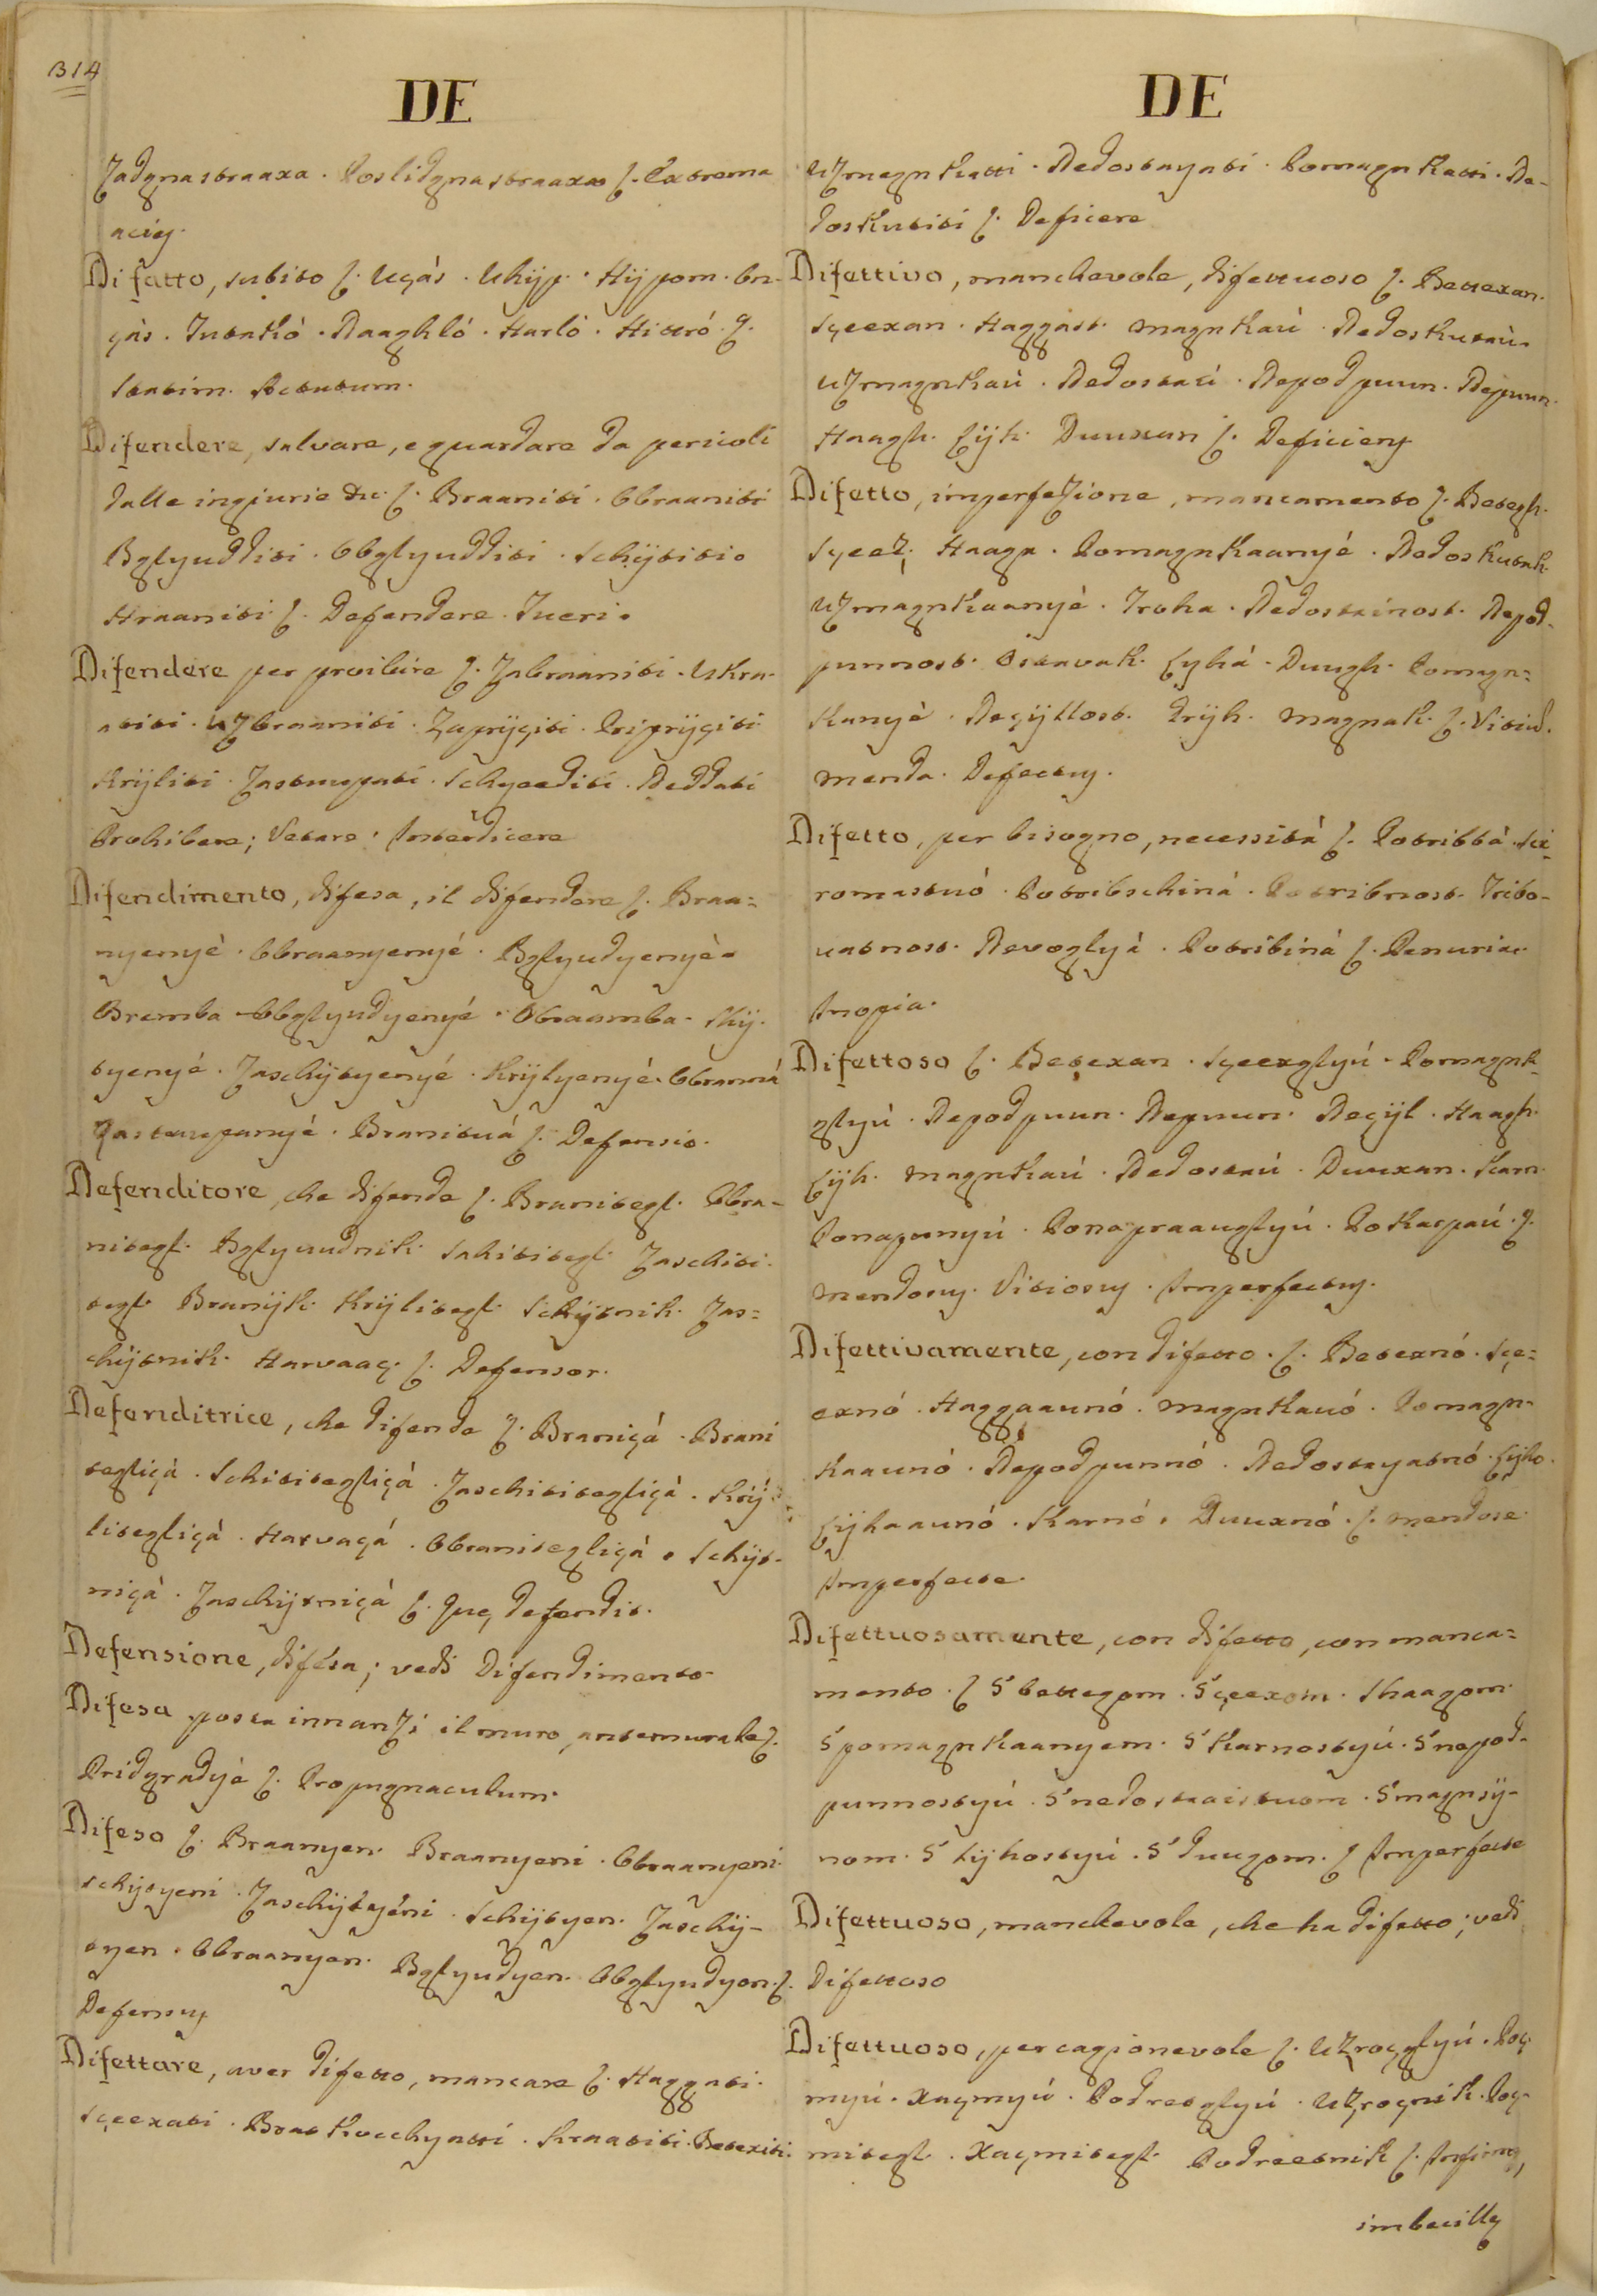 314
DE
Zadgnastraaxa. Poslidgnastraaxa L. Extrema
acies.
Di fatto, subito I. Ugás. Uhÿp. Hÿpom. On-
gás. Tutakó. Naaghló. Harló. Hitró. L.
Statim. Actutum.
Difendere, salvare, e guardare da pericoli
dalle ingiurie &c. I. Braaniti. Obraaniti
Bglyudditi. Obglyudditi. Schÿtiti.
Hraaniti L. Defendere. Tueri.
Difendere per proibire I. Zabraaniti. Uskra-
atiti. Uzbraaniti. Zaprÿçiti. Priprÿçiti
Krÿliti. Zastupati. Schyeediti. Neddati
Prohibere; Vetare; Interdicere
Difendimento, difesa, il difendere I. Braa=
nyenyé. Obraanyenyé. Bglyudyenyé.
Bramba. Obglyudyenyé. Obraamba. Shÿ-
tyenyé. Zaschÿtyenyé. Krÿlyenyé. Obranná
Zastaupanyé. Branituá L. Defensio.
Defenditore, che difende I. Branitegl. Obra-
nitegl. Bglyuudnik. Sahititegl. Zaschiti-
tegl. Branÿk. Krÿlitegl. Schÿtnik. Zas=
chÿtnik. Harvaaç. L. Defensor.
Defenditrice, che difende I. Braniçá. Brani
tegliçá. Schititegliçá. Zaschititegliçá. Krÿ=
litegliçá. Harvaçá. Obranitegliçá. Schÿt-
niçá. Zaschÿtniçá L. Quę defendit.
Defensione, difésa; vedi Difendimento
Difesa posta innanzi il muro, antemurale I.
Pridgradyé L. Propugnaculum.
Difeso I. Braanyen. Braanyeni. Obraanyeni.
schÿtyeni. Zaschÿtyéni. Schÿtyen. Zaschÿ-
tyen. Obraanyen. Bglyudyen. Obglyudyen. L.
Defensus
Difettare, aver difetto, mancare I. Haggati.
Sçeexati. Kraatiti. Betexiti.
DE
Uzmagnkatti. Nedostayati. Pomagnkatti. Ne-
doskutiti L. Deficere
Difettivo, manchevole, difettuoso I. Bettexan.
Sçeexan. Haggast. Magnkaú. Nedoskutaú.
Uzmagnkaú. Nedostaú. Nepodpuun. Nepuun.
Haagh. Lÿh. Duuxan L. Deficiens
Difetto, imperfezione, mancamento I. Betegh.
Sçeez, Haaga. Pomagnkaanyé. Nedoskutak.
Uzmagnkaanyé. Troha. Nedostainost. Nepod-
punnost. Ostavak. Lyhá. Duugh. Pomyn=
kanyé. Neçÿllost. Grÿh. Magnak. L. Vitium.
Menda. Defectus.
Difetto, per bisogno, necessitá I. Potribbá. Sii-
romastuó. Potribschiná. Potribnost. Tribo-
uatnost. Nevoglyá. Potribiná L. Penuria.
Inopia.
Difettoso I. Betexan. Sçeexglyú. Pomagnk-
glyú. Nepodpuun. Nepuun. Neçÿl. Haagh.
Lÿh. Magnkaú. Nedostaú. Duuxan. Karn
Ponapunyú. Ponapraauglyú. Pokarpaú. L.
Mendosus. Vitiosus. Imperfectus.
Difettivamente, con difetto. I. Betexnó. Sçe=
exnó. Haggaaunó. Magnkauó. Pomagn-
kaaunó. Nepodpunnó. Nedostayatnó. Lÿho.
Lÿhaaunó. Karnó. Duuxnó. L. Mendose.
Imperfecte.
Difettuosamente, con difetto, con manca=
mento. I S' bettegom. S' çeexom. Shaagom.
S' pomagnkaanyem. S' Karnostyú. S' nepod-
punnostyú. S' nedostaistuom. S' magnsÿ-
nom. S' Lÿhostyú. S' duugom. L Imperfecte
Difettuoso, manchevole, che ha difetto; vedi
Difettoso
Difettuoso, per cagionevole I. Uzroçglyú. Poç-
myú. Xaçmyú. Podretglyú. Uzroçnik. Poç-
mitegl. Xaçmitegl. Podreetnik L. Infirmus,
imbecillis